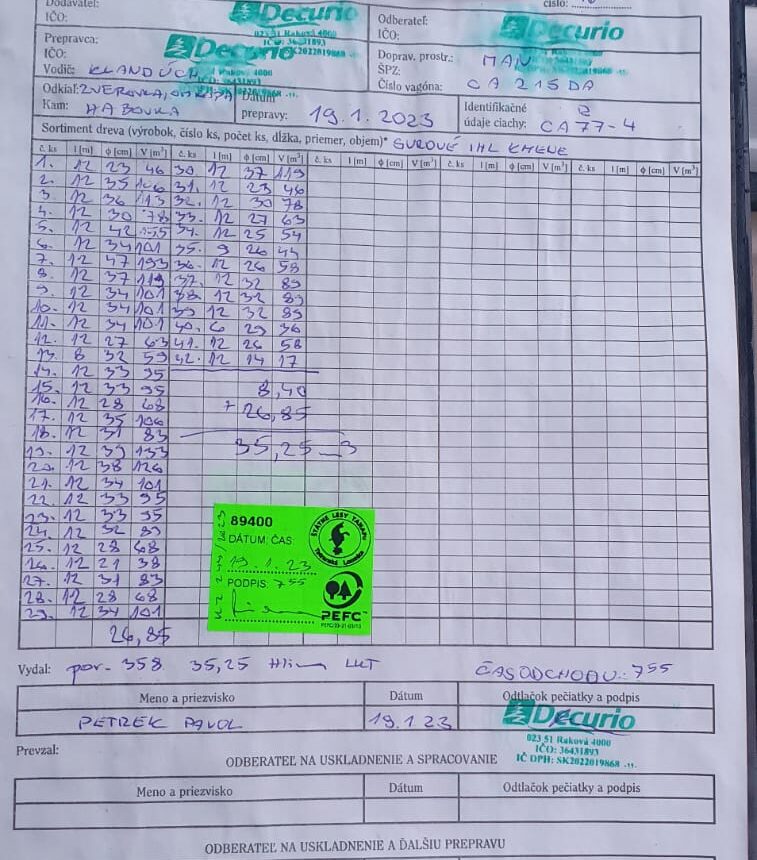 Dodávateľ: Decurio Odberateľ: Decurio číslo:
IČO: 023 51 Raková 4000 IČO:
Prepravca: IČO: 36431893
IČO: Decurio SK2022019868 Doprav. prostr.: MAN
ŠPZ:
Vodič: KLANDÚCH Raková 4000 Číslo vagóna: CA 215DA
Odkiaľ: ZVEROVKA, Dátum
Kam: HABOVKA prepravy: 19.1.2023 Identifikačné
údaje ciachy: CA 77-4
Sortiment dreva (výrobok, číslo ks, počet ks, dĺžka, priemer, objem)* SUROVÉ IHL KMENE
č. ks l [m] ϕ [cm] V [m³] č. ks l [m] ϕ [cm] V [m³] č. ks l [m] ϕ [cm] V [m³] č. ks l [m] ϕ [cm] V [m³] č. ks l [m] ϕ [cm] V [m³]
1. 12 23 46 30 12 37 119
2. 12 35 106 31. 12 23 46
3. 12 36 113 32. 12 30 78
4. 12 30 78 33. 12 27 63
5. 12 42 155 34. 12 25 54
6. 12 34 101 35. 9 26 44
7. 12 47 193 36. 12 26 58
8. 12 37 119 37. 12 32 89
9. 12 34 101 38. 12 32 89
10. 12 34 101 39 12 32 89
11. 12 34 101 40. 6 29 36
12. 12 27 63 41. 12 26 58
13. 8 32 59 42. 12 14 17
14. 12 33 95
15. 12 33 95 8,40
16. 12 28 68 + 26,85
17. 12 35 106
18. 12 31 83 35,25 m3
19. 12 39 133
20. 12 38 126
21. 12 34 101
22. 12 33 95
23. 12 33 95
24. 12 32 89
25. 12 28 68
26. 12 21 38
27. 12 31 83
28. 12 28 68
29. 12 34 101
26,85
89400
DÁTUM: ČAS:
19.1.23
PODPIS: 755
ŠTÁTNE LESY TANAPU
Tatranská Lomnica
PEFC™
Vydal: por. 358 35,25 LKT ČAS ODCHODU: 755
Meno a priezvisko Dátum Odtlačok pečiatky a podpis
PETREK PAVOL 19.1.23 Decurio
023 51 Raková 4000
IČO: 36431893
IČ DPH: SK2022019868 -11-
Prevzal:
ODBERATEĽ NA USKLADNENIE A SPRACOVANIE
Meno a priezvisko Dátum Odtlačok pečiatky a podpis
ODBERATEĽ NA USKLADNENIE A ĎALŠIU PREPRAVU